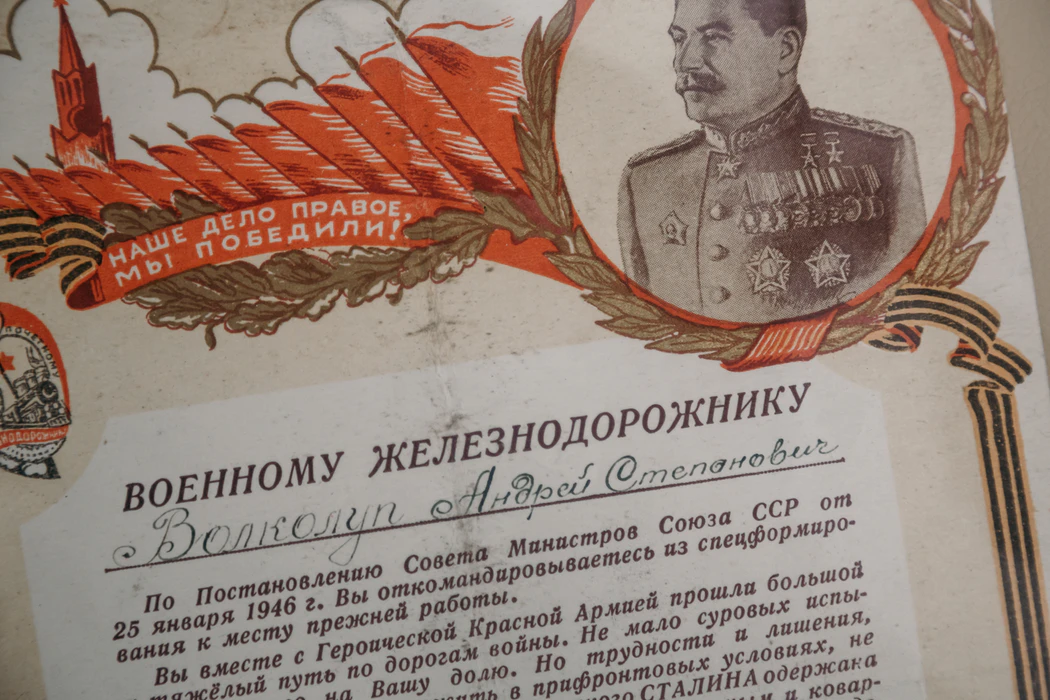 НАШЕ ДЕЛО ПРАВОЕ,
МЫ ПОБЕДИЛИ!
ПОЧЕТНОМУ
ВОЕННОМУ ЖЕЛЕЗНОДОРОЖНИКУ
Волколуп Андрей Степанович
По Постановлению Совета Министров Союза ССР от
25 января 1946 г. Вы откомандировываетесь из спецформиро-
вания к месту прежней работы.
Вы вместе с Героической Красной Армией прошли большой
тяжёлый путь по дорогам войны. Не мало суровых испы-
на Вашу долю. Но трудности и лишения,
в прифронтовых условиях, не
СТАЛИНА одержана
и ковар-